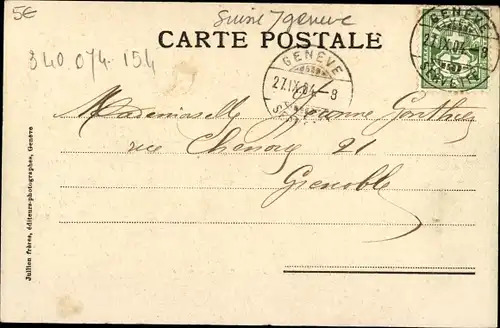 5€
Suisse / geneve
CARTE POSTALE
340 074. 154
GENÈVE
27.IX.04.-8
GENÈVE
27.IX.04.-8
Mademoiselle
rue Chenoise 21
Grenoble
Jullien frères, éditeurs-photographes, Genève